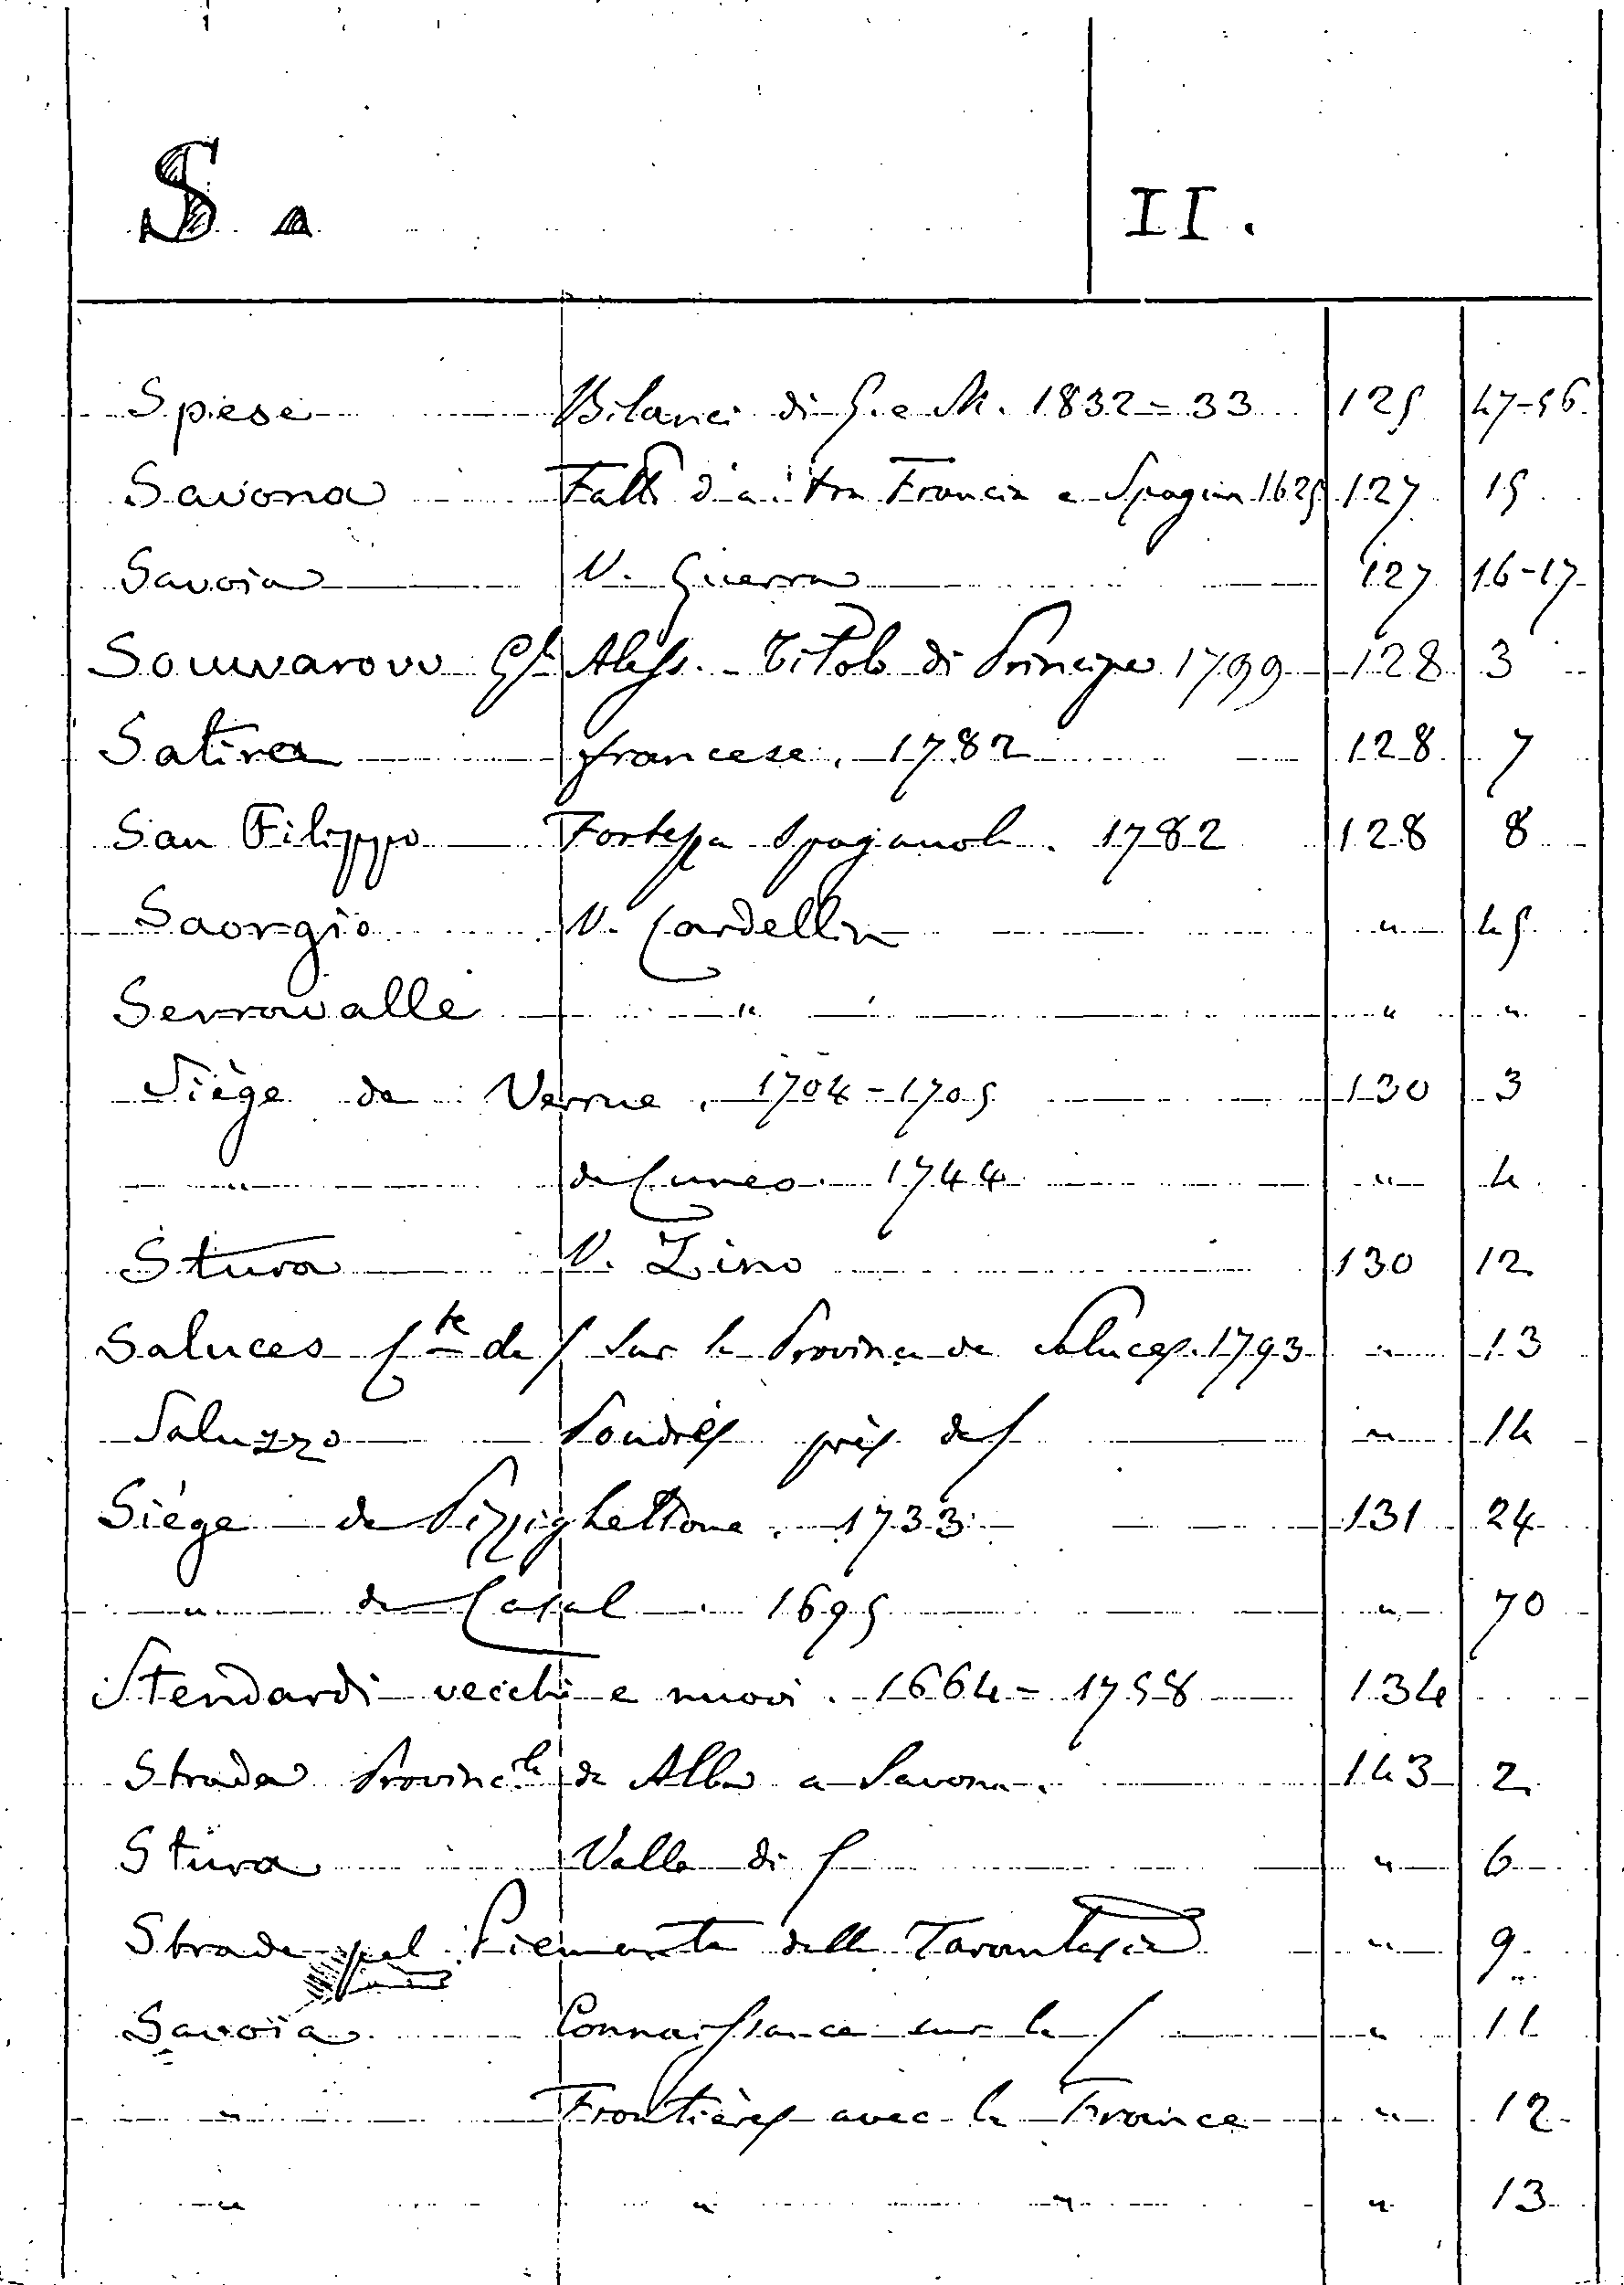 S. II.
Spese Bilanci di G. e M. 1832-33 125 47-56
Savona Fatti d'a: tra Francia e Spagna 1625 127 15
Savoia V. Guerra 127 16-17
Souwarow Aless. Titolo di Principe 1799 128 3
Satira francese. 1782 128 7
San Filippo Fortezza Spagnola. 1782 128 8
Saorgio V. Cardellin " 45
Serravalle " " "
Siège de Verrue. 1704-1705 130 3
" de Cuneo. 1744 " 4
Stura V. Zino 130 12
Saluces Cte de S Sur la Province de Saluces. 1793 " 13
Saluzzo près de S " 14
Siège de Pizzighettone. 1733 131 24
" de Casal. 1695 " 70
Stendardi vecchi e nuovi. 1664-1758 134
Strada Provinc.le da Alba a Savona. 143 2
Stura Valle di S " 6
Strade pel Piemonte della Tarantasia " 9
Savoia Connaissance sur la S " 11
" Frontières avec la France " 12
" " " " 13